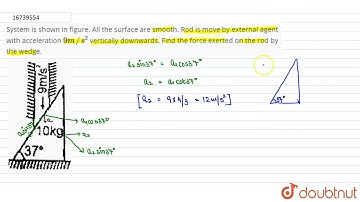 16739554
System is shown in figure. All the surface are smooth. Rod is move by external agent
with acceleration 9m/s² vertically downwards. Find the force exerted on the rod by
the wedge.
a₂ sin37° = a₁ cos37°
a₂ = a₁ cot37°
[a₂ = 9×4/3 = 12m/s²]
9m/s²
a₁cos37°
a₂
10kg
37°
a₂ sin37°
37°
doubtnut